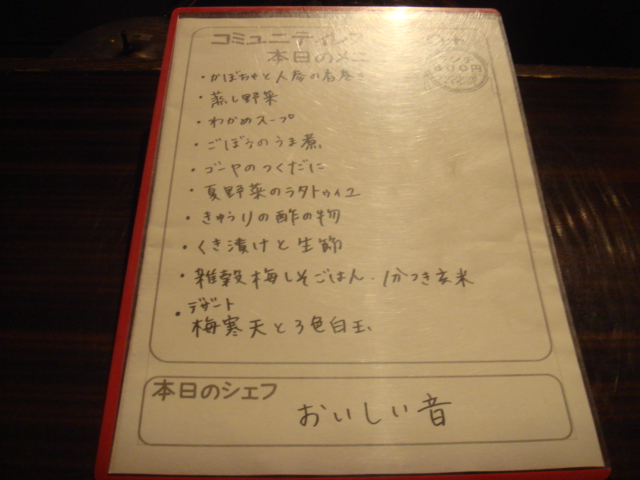 コミュニティレス
本日のメニ
・かぼちゃと人参の春巻き
・蒸し野菜
・わかめスープ
・ごぼうのうま煮
・ゴーヤのつくだに
・夏野菜のラタトゥイユ
・きゅうりの酢の物
・くき漬けと生節
・雑穀梅しそごはん・1分つき玄米
・デザート
梅寒天と3色白玉
本日のシェフ
おいしい音